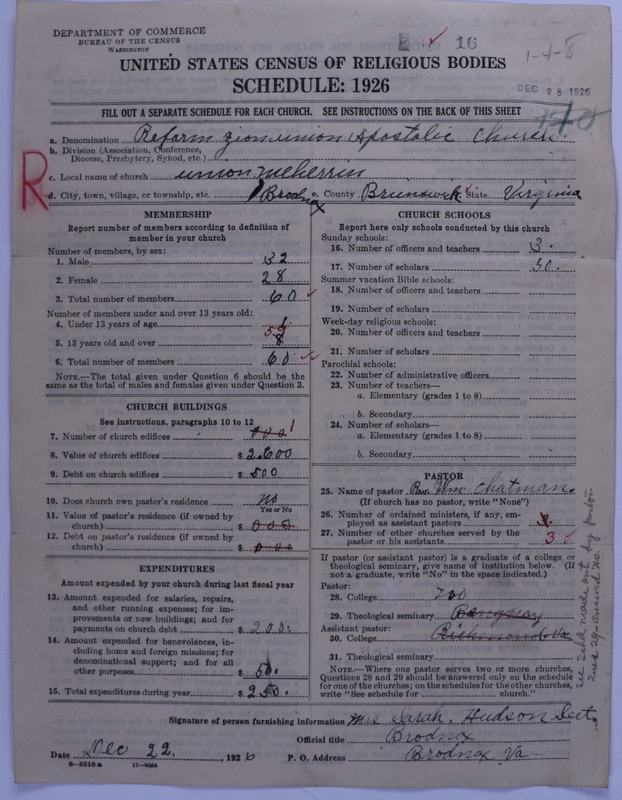 DEPARTMENT OF COMMERCE
BUREAU OF THE CENSUS
WASHINGTON
16
1-4-8
UNITED STATES CENSUS OF RELIGIOUS BODIES
SCHEDULE: 1926
DEC 28 1926
FILL OUT A SEPARATE SCHEDULE FOR EACH CHURCH. SEE INSTRUCTIONS ON THE BACK OF THIS SHEET
a. Denomination Reform Zion union Apostolic Church
b. Division (Association, Conference, Diocese, Presbytery, Synod, etc.)
R
c. Local name of church union meherrin
d. City, town, village, or township, etc. Brodnax e. County Brunswick State Virginia
MEMBERSHIP
Report number of members according to definition of member in your church
Number of members, by sex:
1. Male 32
2. Female 28
3. Total number of members 60
Number of members under and over 13 years old:
4. Under 13 years of age
5. 13 years old and over
6. Total number of members 60
NOTE.—The total given under Question 6 should be the same as the total of males and females given under Question 3.
CHURCH BUILDINGS
See instructions, paragraphs 10 to 12
7. Number of church edifices 1
8. Value of church edifices $ 2600
9. Debt on church edifices $ 500
10. Does church own pastor's residence No
Yes or No
11. Value of pastor's residence (if owned by church) $ 000
12. Debt on pastor's residence (if owned by church) $ 000
EXPENDITURES
Amount expended by your church during last fiscal year
13. Amount expended for salaries, repairs, and other running expenses; for improvements or new buildings; and for payments on church debt $ 200.
14. Amount expended for benevolences, including home and foreign missions; for denominational support; and for all other purposes $ 50.
15. Total expenditures during year $ 250.
CHURCH SCHOOLS
Report here only schools conducted by this church
Sunday schools:
16. Number of officers and teachers 3.
17. Number of scholars 30.
Summer vacation Bible schools:
18. Number of officers and teachers
19. Number of scholars
Week-day religious schools:
20. Number of officers and teachers
21. Number of scholars
Parochial schools:
22. Number of administrative officers
23. Number of teachers—
a. Elementary (grades 1 to 8)
b. Secondary
24. Number of scholars—
a. Elementary (grades 1 to 8)
b. Secondary
PASTOR
25. Name of pastor Rev. Wm Chatman.
(If church has no pastor, write "None")
26. Number of ordained ministers, if any, employed as assistant pastors
27. Number of other churches served by the pastor or his assistants 3
If pastor (or assistant pastor) is a graduate of a college or theological seminary, give name of institution below. (If not a graduate, write "No" in the space indicated.)
Pastor:
28. College
29. Theological seminary
Assistant pastor:
30. College Richmond Va
31. Theological seminary
NOTE.—Where one pastor serves two or more churches, Questions 28 and 29 should be answered only on the schedule for one of the churches; on the schedules for the other churches, write "See schedule for church."
Signature of person furnishing information Mrs Sarah Hudson Sect
Official title Brodnax
Date Dec 22, 1926 P. O. Address Brodnax Va
8—5518a 11—9064